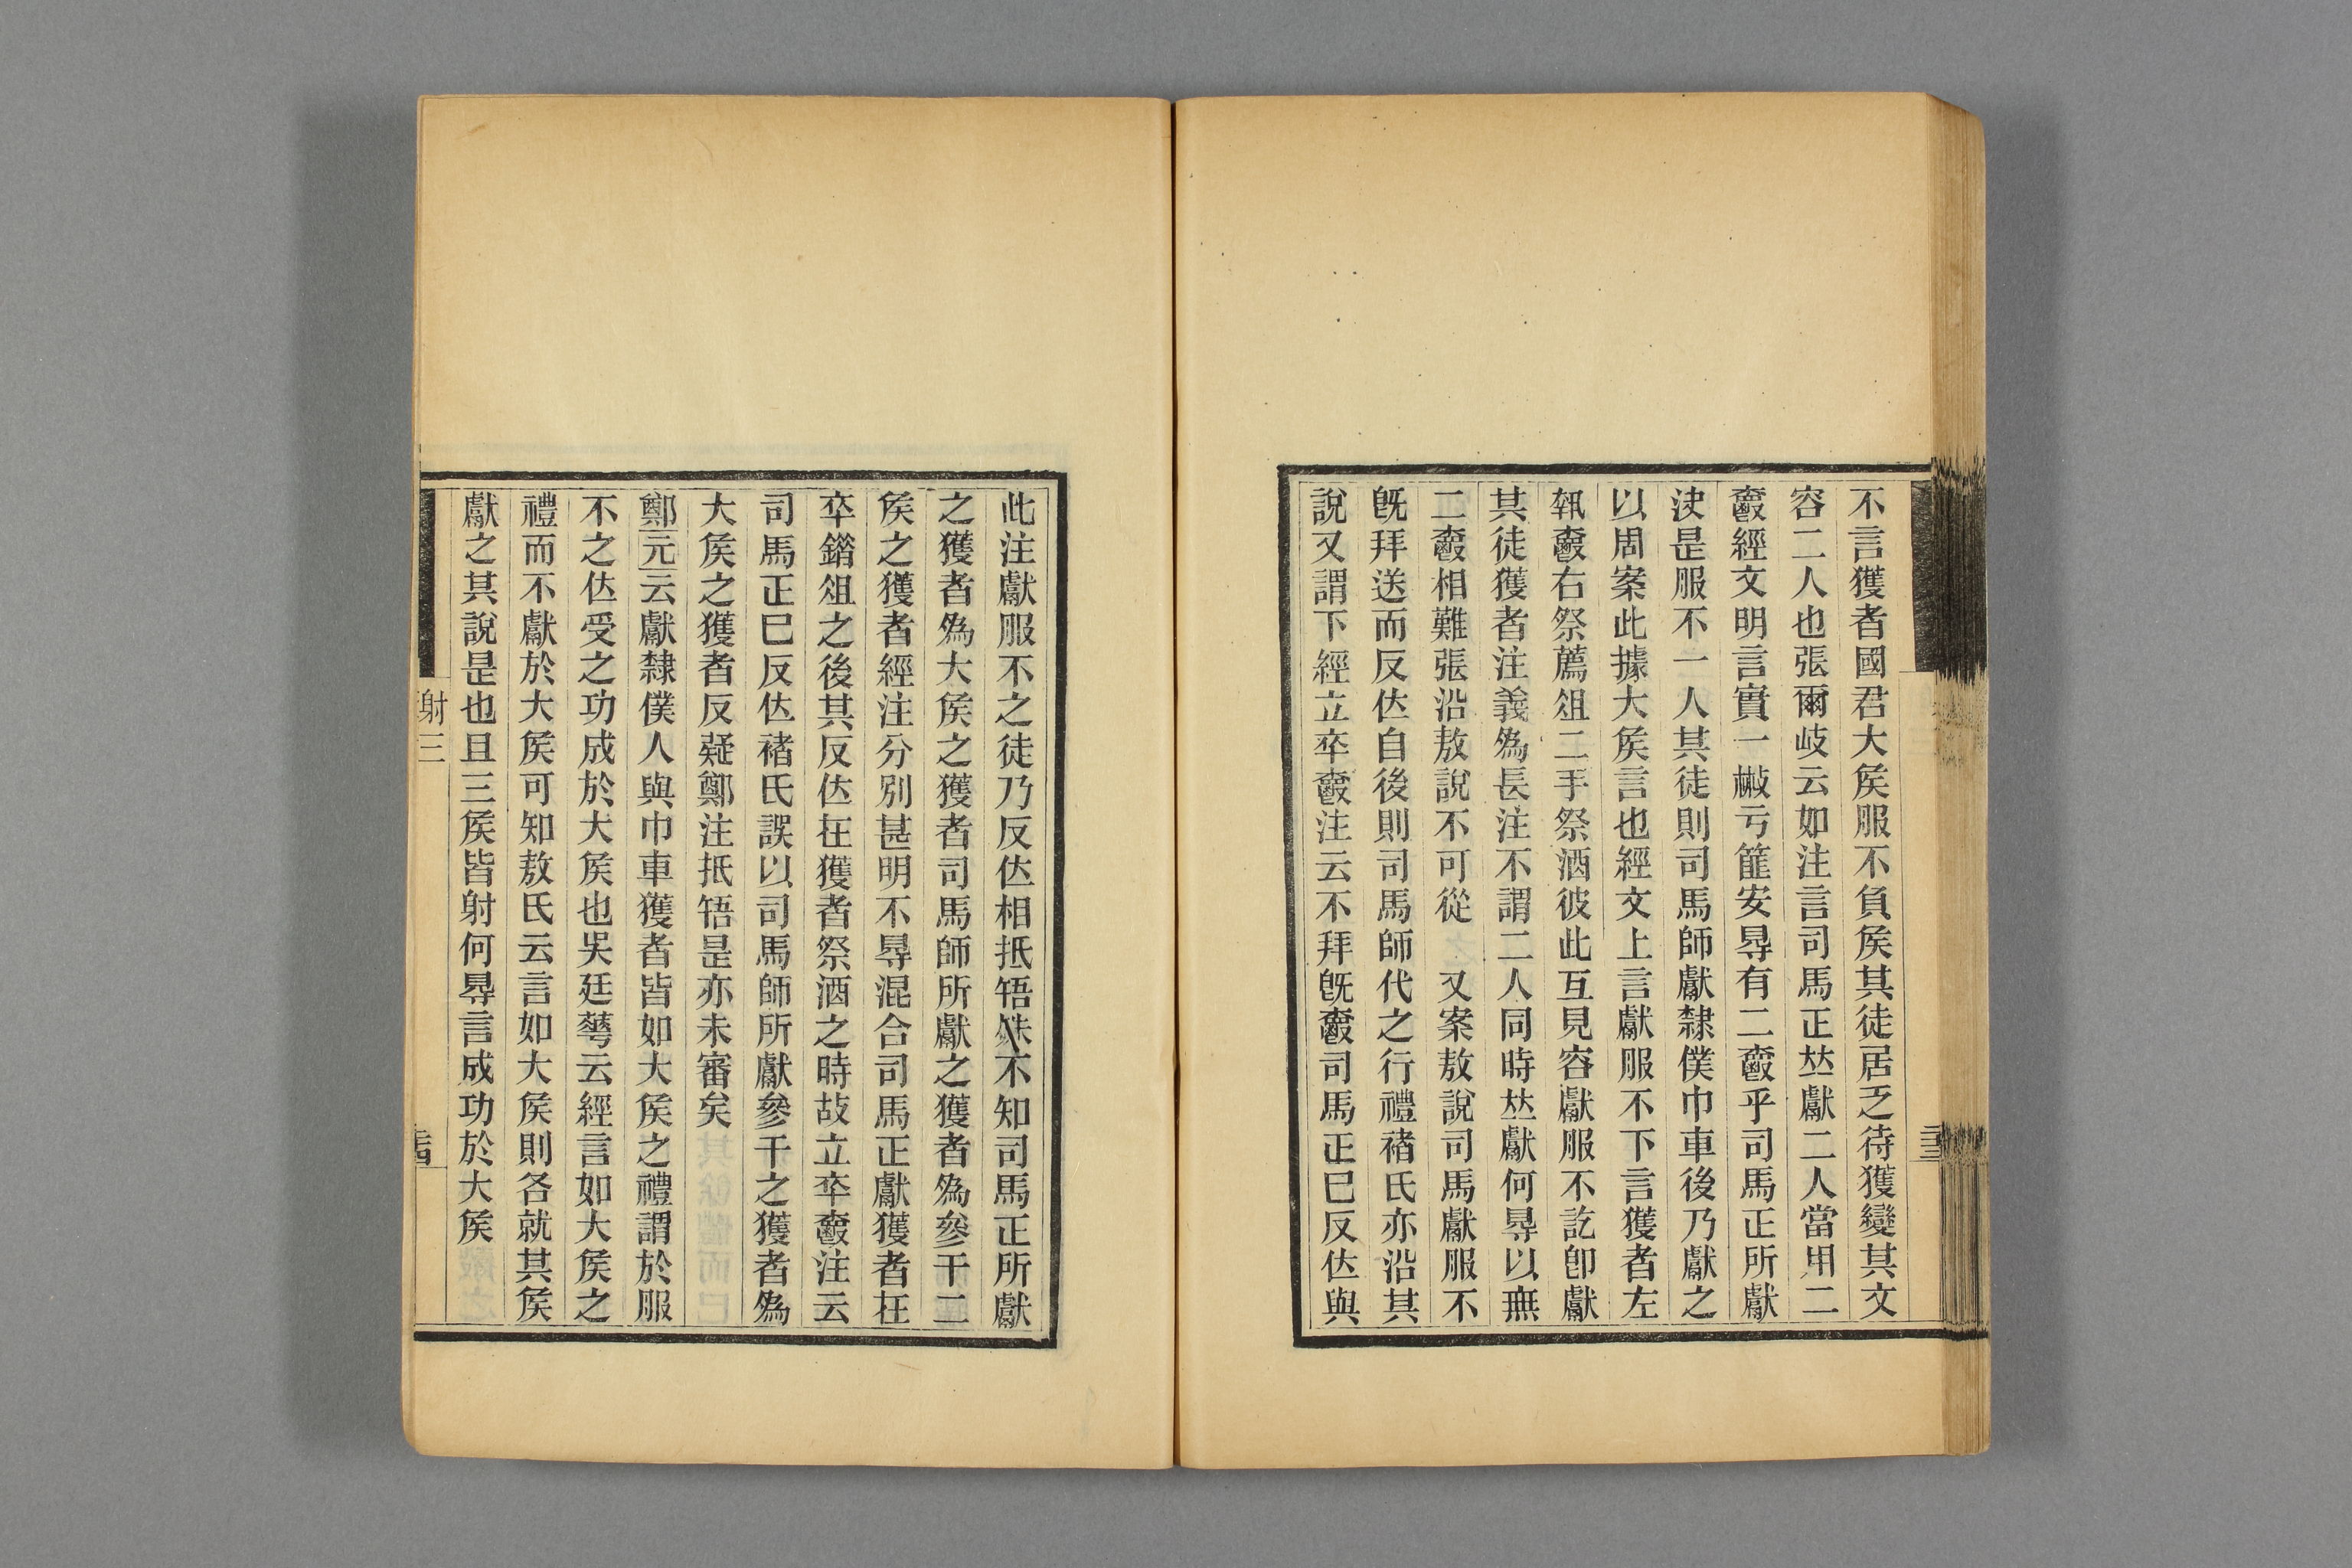 不言獲者國君大矦服不負矦其徒居乏待獲變其文
容二人也張爾岐云如注言司馬正𠀤獻二人當用二
爵經文明言實一㪔亏篚安㝵有二爵乎司馬正所獻
決是服不一人其徒則司馬師獻隸僕巾車後乃獻之
以周案此據大矦言也經文上言獻服不下言獲者左
執爵右祭薦俎二手祭酒彼此互見容獻服不訖卽獻
其徒獲者注義爲長注不謂二人同時𠀤獻何㝵以無
二爵相難張沿敖說不可從　又案敖說司馬獻服不
旣拜送而反位自後則司馬師代之行禮褚氏亦沿其
說又謂下經立卒爵注云不拜旣爵司馬正已反位與
此注獻服不之徒乃反位相抵牾殊不知司馬正所獻
之獲者爲大矦之獲者司馬師所獻之獲者爲參干二
矦之獲者經注分別甚明不㝵混合司馬正獻獲者在
卒錯俎之後其反位在獲者祭酒之時故立卒爵注云
司馬正已反位褚氏誤以司馬師所獻參干之獲者爲
大矦之獲者反疑鄭注抵牾是亦未審矣
鄭元云獻隸僕人與巾車獲者皆如大矦之禮謂於服
不之位受之功成於大矦也吳廷華云經言如大矦之
禮而不獻於大矦可知敖氏云言如大矦則各就其矦
獻之其說是也且三矦皆射何㝵言成功於大矦
射三